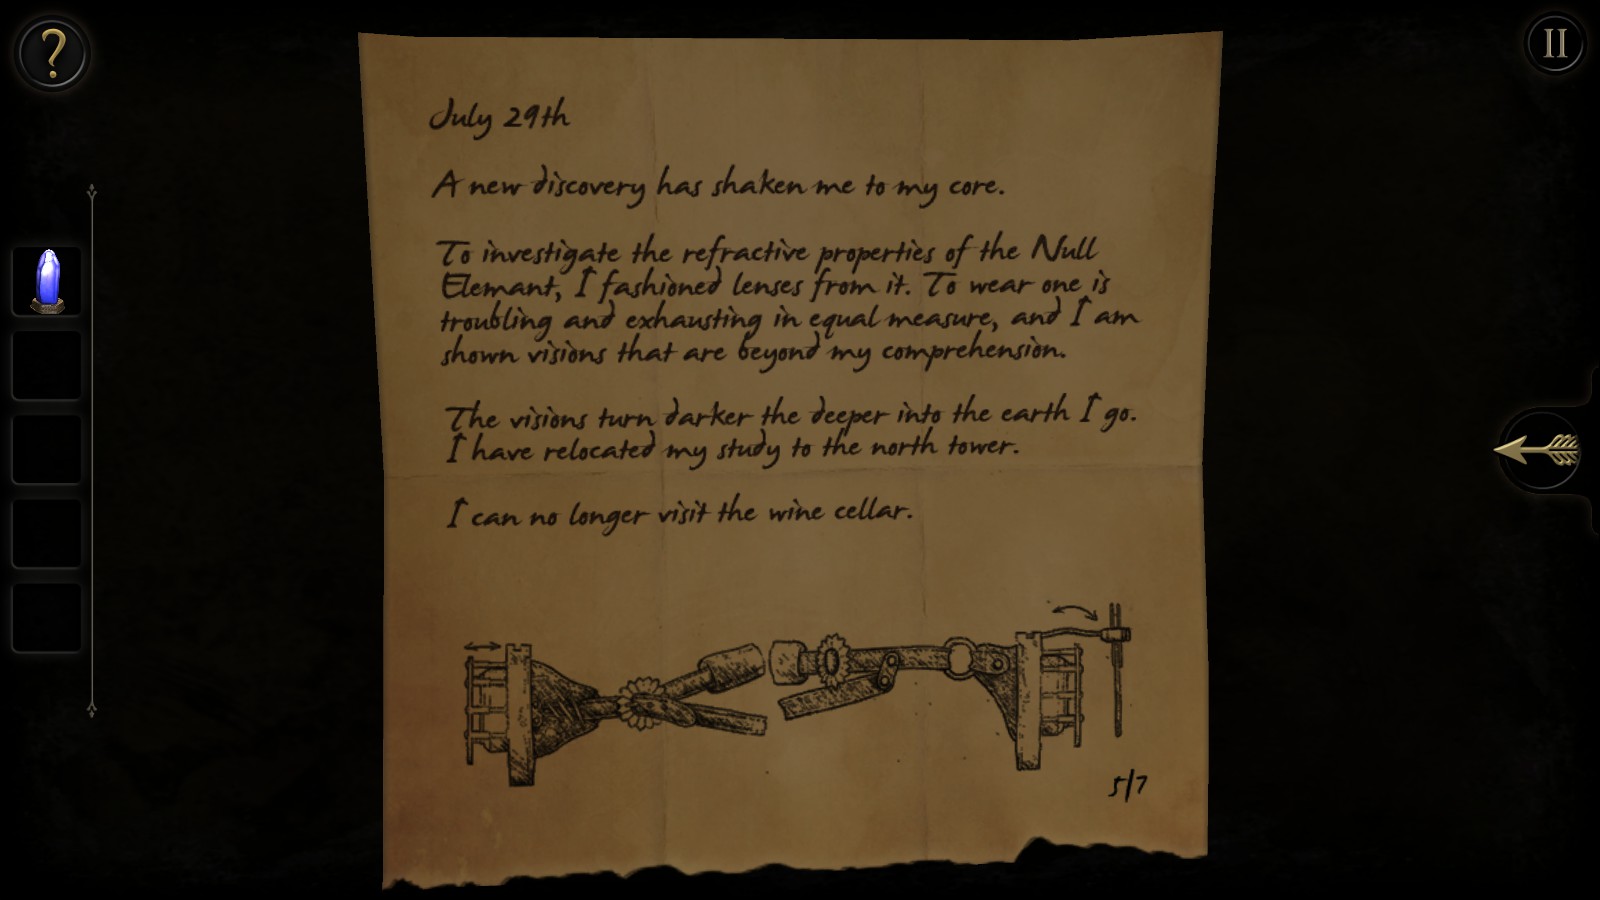 July 29th
A new discovery has shaken me to my core.
To investigate the refractive properties of the Null
Elemant, I fashioned lenses from it. To wear one is
troubling and exhausting in equal measure, and I am
shown visions that are beyond my comprehension.
The visions turn darker the deeper into the earth I go.
I have relocated my study to the north tower.
I can no longer visit the wine cellar.
5/7